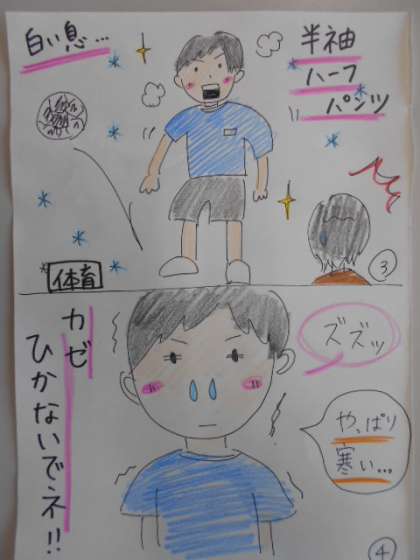 白い息…
半袖
ハーフ
パンツ
体育
③
ズズッ
やっぱり
寒い…
カゼ
ひかないでネ!!
④